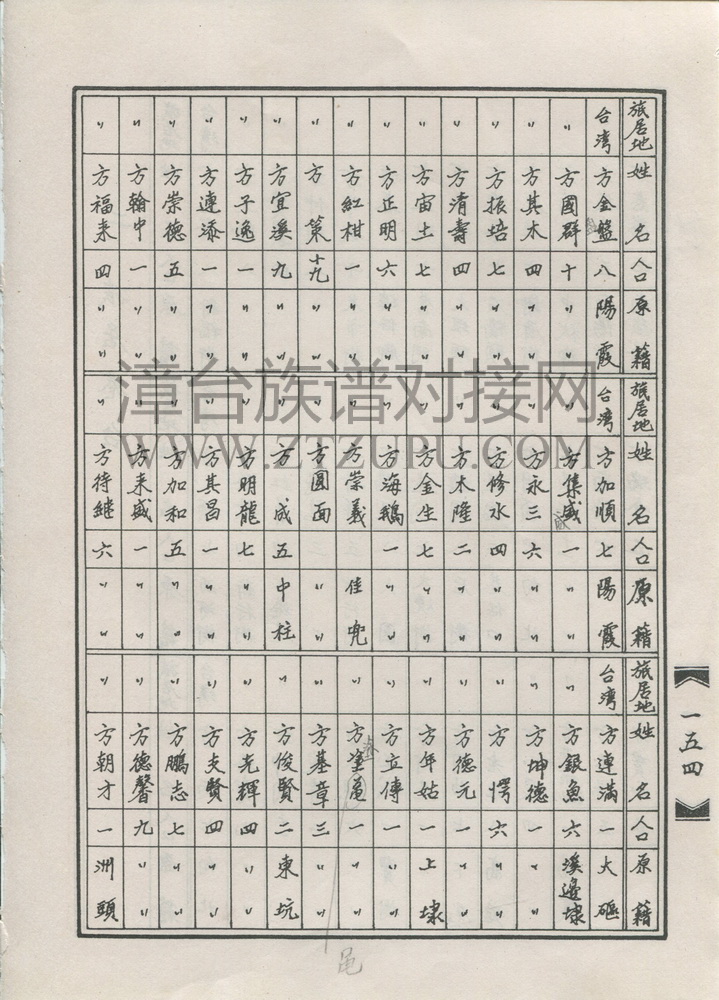 旅居地 姓名 人口 原籍
台湾 方金盤 八 陽霞
〃 方國群 十 〃〃
〃 方其木 四 〃〃
〃 方振培 七 〃〃
〃 方清壽 四 〃〃
〃 方宙土 七 〃〃
〃 方正明 六 〃〃
〃 方紅柑 一 〃〃
〃 方策 十九 〃〃
〃 方宜溪 九 〃〃
〃 方子逸 一 〃〃
〃 方連添 一 〃〃
〃 方崇德 五 〃〃
〃 方翰中 一 〃〃
〃 方福来 四 〃〃
旅居地 姓名 人口 原籍
台湾 方加順 七 陽霞
〃 方集盛 一 〃〃
〃 方永三 六 〃〃
〃 方修水 四 〃〃
〃 方木隆 二 〃〃
〃 方金生 七 〃〃
〃 方海鵝 一 〃〃
〃 方崇義 佳兜
〃 方圓面 〃〃
〃 方成 五 中柱
〃 方明龍 七 〃〃
〃 方其昌 一 〃〃
〃 方加和 五 〃〃
〃 方来盛 一 〃〃
〃 方待继 六 〃〃
旅居地 姓名 人口 原籍
台湾 方連滿 一 大
〃 方銀魚 六 溪邊埭
〃 方坤德 一 〃〃
〃 方愕 六 〃〃
〃 方德元 一 〃〃
〃 方年姑 一 上埭
〃 方立傳 一 〃〃
〃 方 一 〃〃
〃 方基章 三 〃〃
〃 方俊賢 二 東坑
〃 方光輝 四 〃〃
〃 方夫賢 四 〃〃
〃 方鵬志 七 〃〃
〃 方德馨 九 〃〃
〃 方朝才 一 洲頭
一五四
漳台族谱对接网
WWW.ZTZUPU.COM